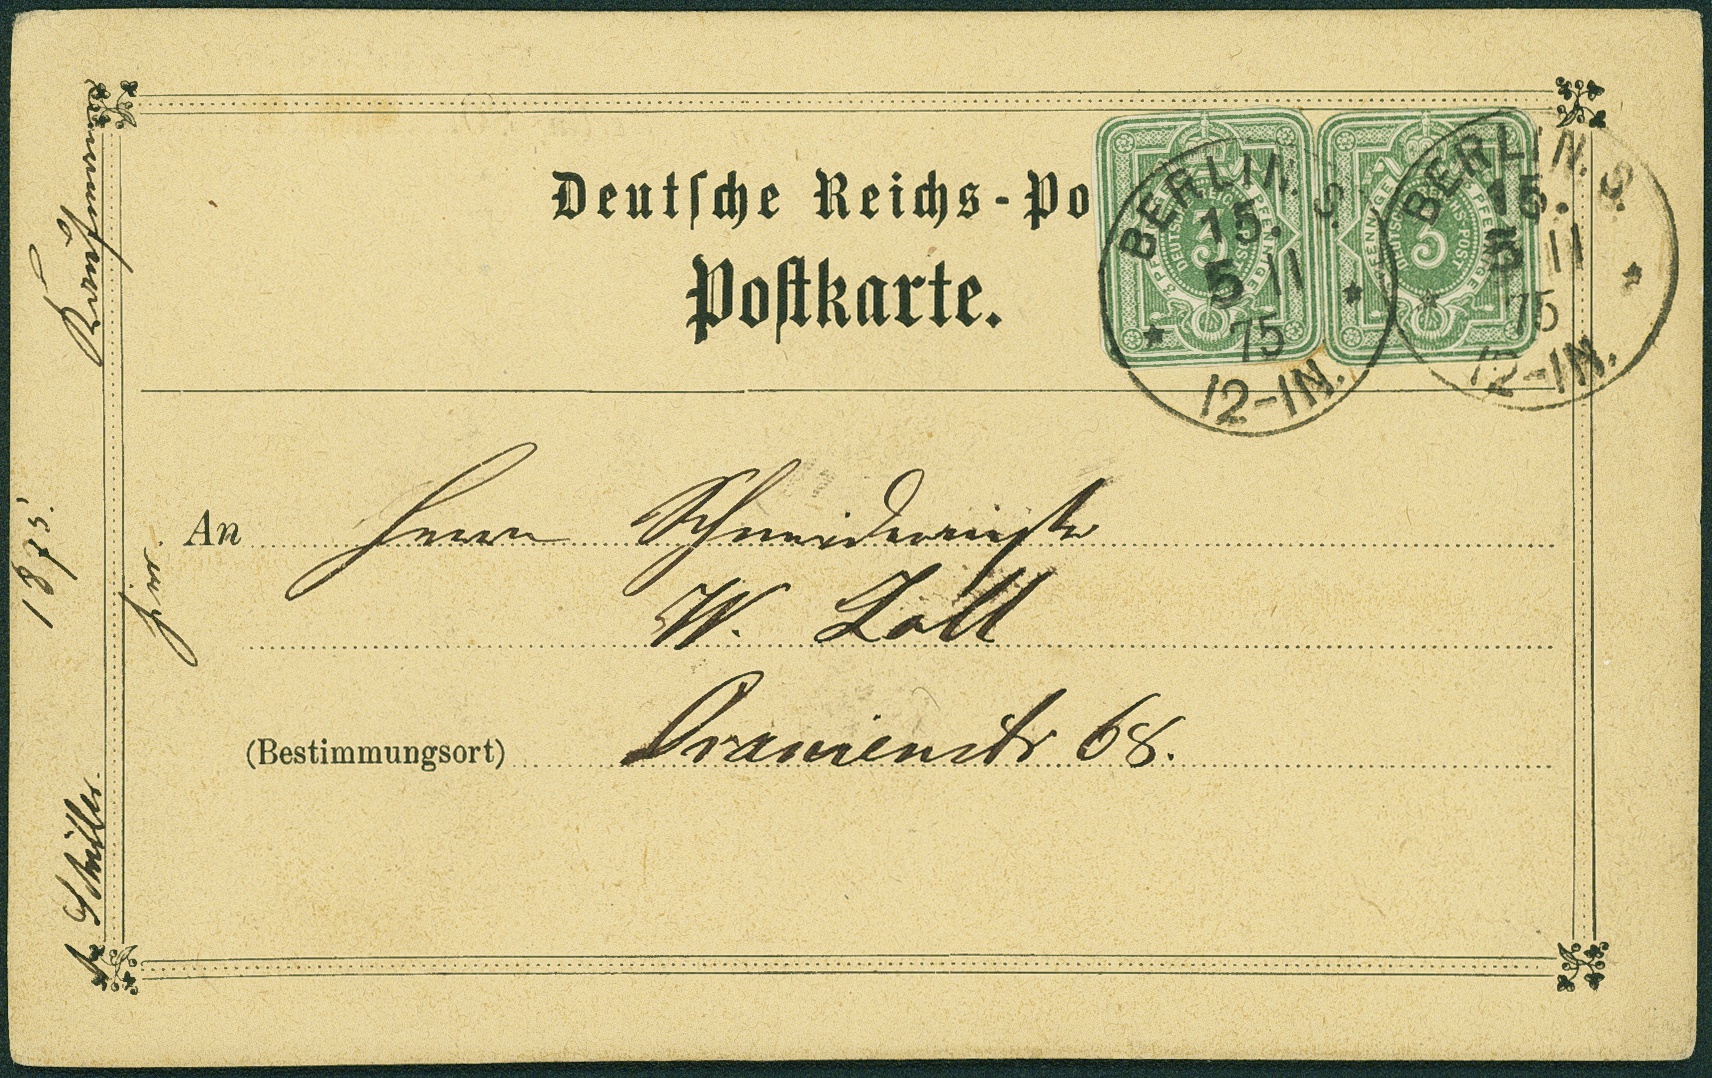 Deutſche Reichs-Po
Poſtkarte.
3 PFENNIGE
DEUTSCHE REICHS-POST
3
3 PFENNIGE
DEUTSCHE REICHS-POST
3
BERLIN. S.
15.
5 11
75
12-1N.
BERLIN. S.
15.
5 11
75
12-1N.
An Herrn Schneidermstr
W. Loll
(Bestimmungsort) Oranienstr 68.
hier.
Schiller.
Kaufmann
1875.